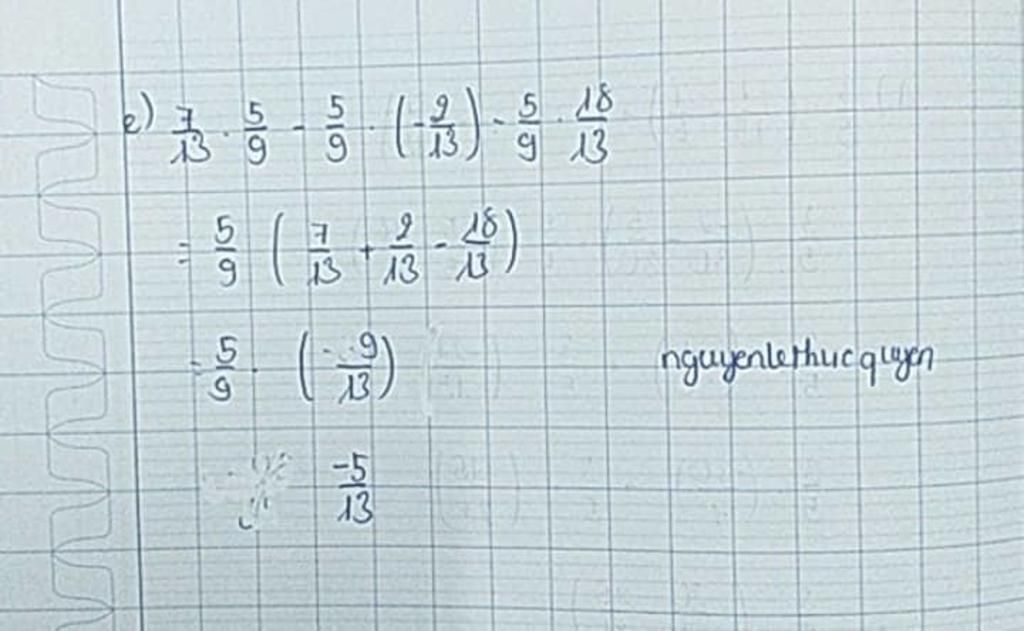 e) 7/13 . 5/9 - 5/9 . (-2/13) - 5/9 . 18/13
= 5/9 ( 7/13 + 2/13 - 18/13 )
= 5/9 . ( - 9/13 )
nguyenlethucquyen
-5/13